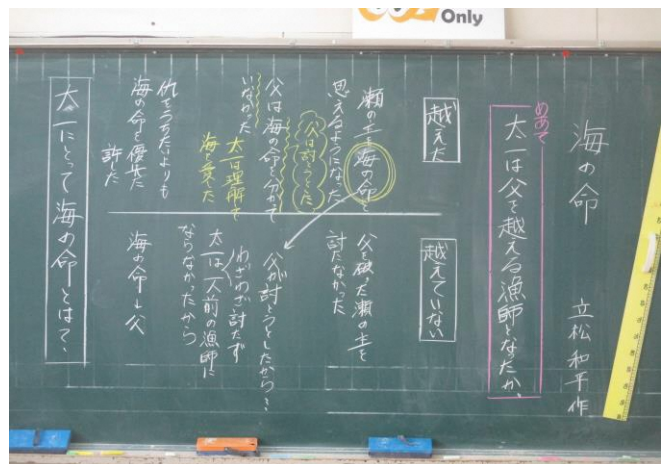 Only
海の命
立松和平作
めあて
太一は父を越える漁師となったか。
越えた
瀬の主を海の命と
思えるようになった
父は討とうとした
父は海の命と分かって
いなかった
太一は理解して
海を愛した
仇をうちたいよりも
海の命を優先
許した
越えていない
父を破った瀬の主を
討たなかった
父が討とうとしたから？
わざわざ討たず
太一は一人前の漁師に
ならなかったから
海の命＝父
太一にとって海の命とは？